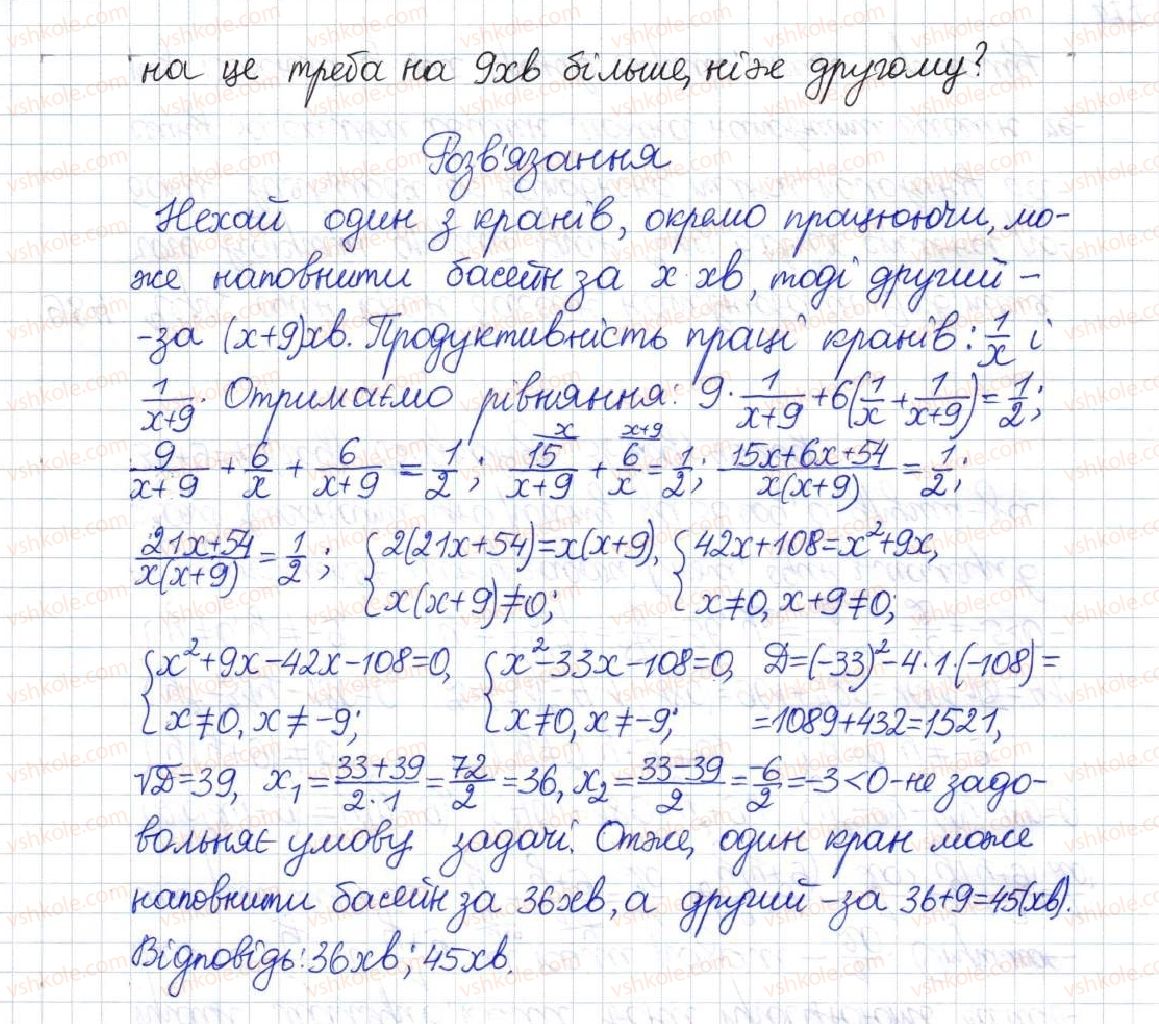 на це треба на 9хв більше, ніж другому?
Розв'язання
Нехай один з кранів, окремо працюючи, мо-
же наповнити басейн за x хв, тоді другий -
-за (x+9)хв. Продуктивність праці кранів: 1/x і
1/(x+9). Отримаємо рівняння: 9·1/(x+9)+6(1/x+1/(x+9))=1/2;
9/(x+9)+6/x+6/(x+9)=1/2; 15/(x+9) (x) + 6/x (x+9) =1/2; (15x+6x+54)/(x(x+9))=1/2;
(21x+54)/(x(x+9))=1/2; {2(21x+54)=x(x+9), x(x+9)≠0; {42x+108=x²+9x, x≠0, x+9≠0;
{x²+9x-42x-108=0, x≠0, x≠-9; {x²-33x-108=0, x≠0, x≠-9; D=(-33)²-4·1·(-108)=
=1089+432=1521,
√D=39, x₁=(33+39)/(2·1)=72/2=36, x₂=(33-39)/2=-6/2=-3<0-не задо-
вольняє умову задачі. Отже, один кран може
наповнити басейн за 36хв, а другий -за 36+9=45(хв).
Відповідь: 36хв; 45хв.
vshkole.com